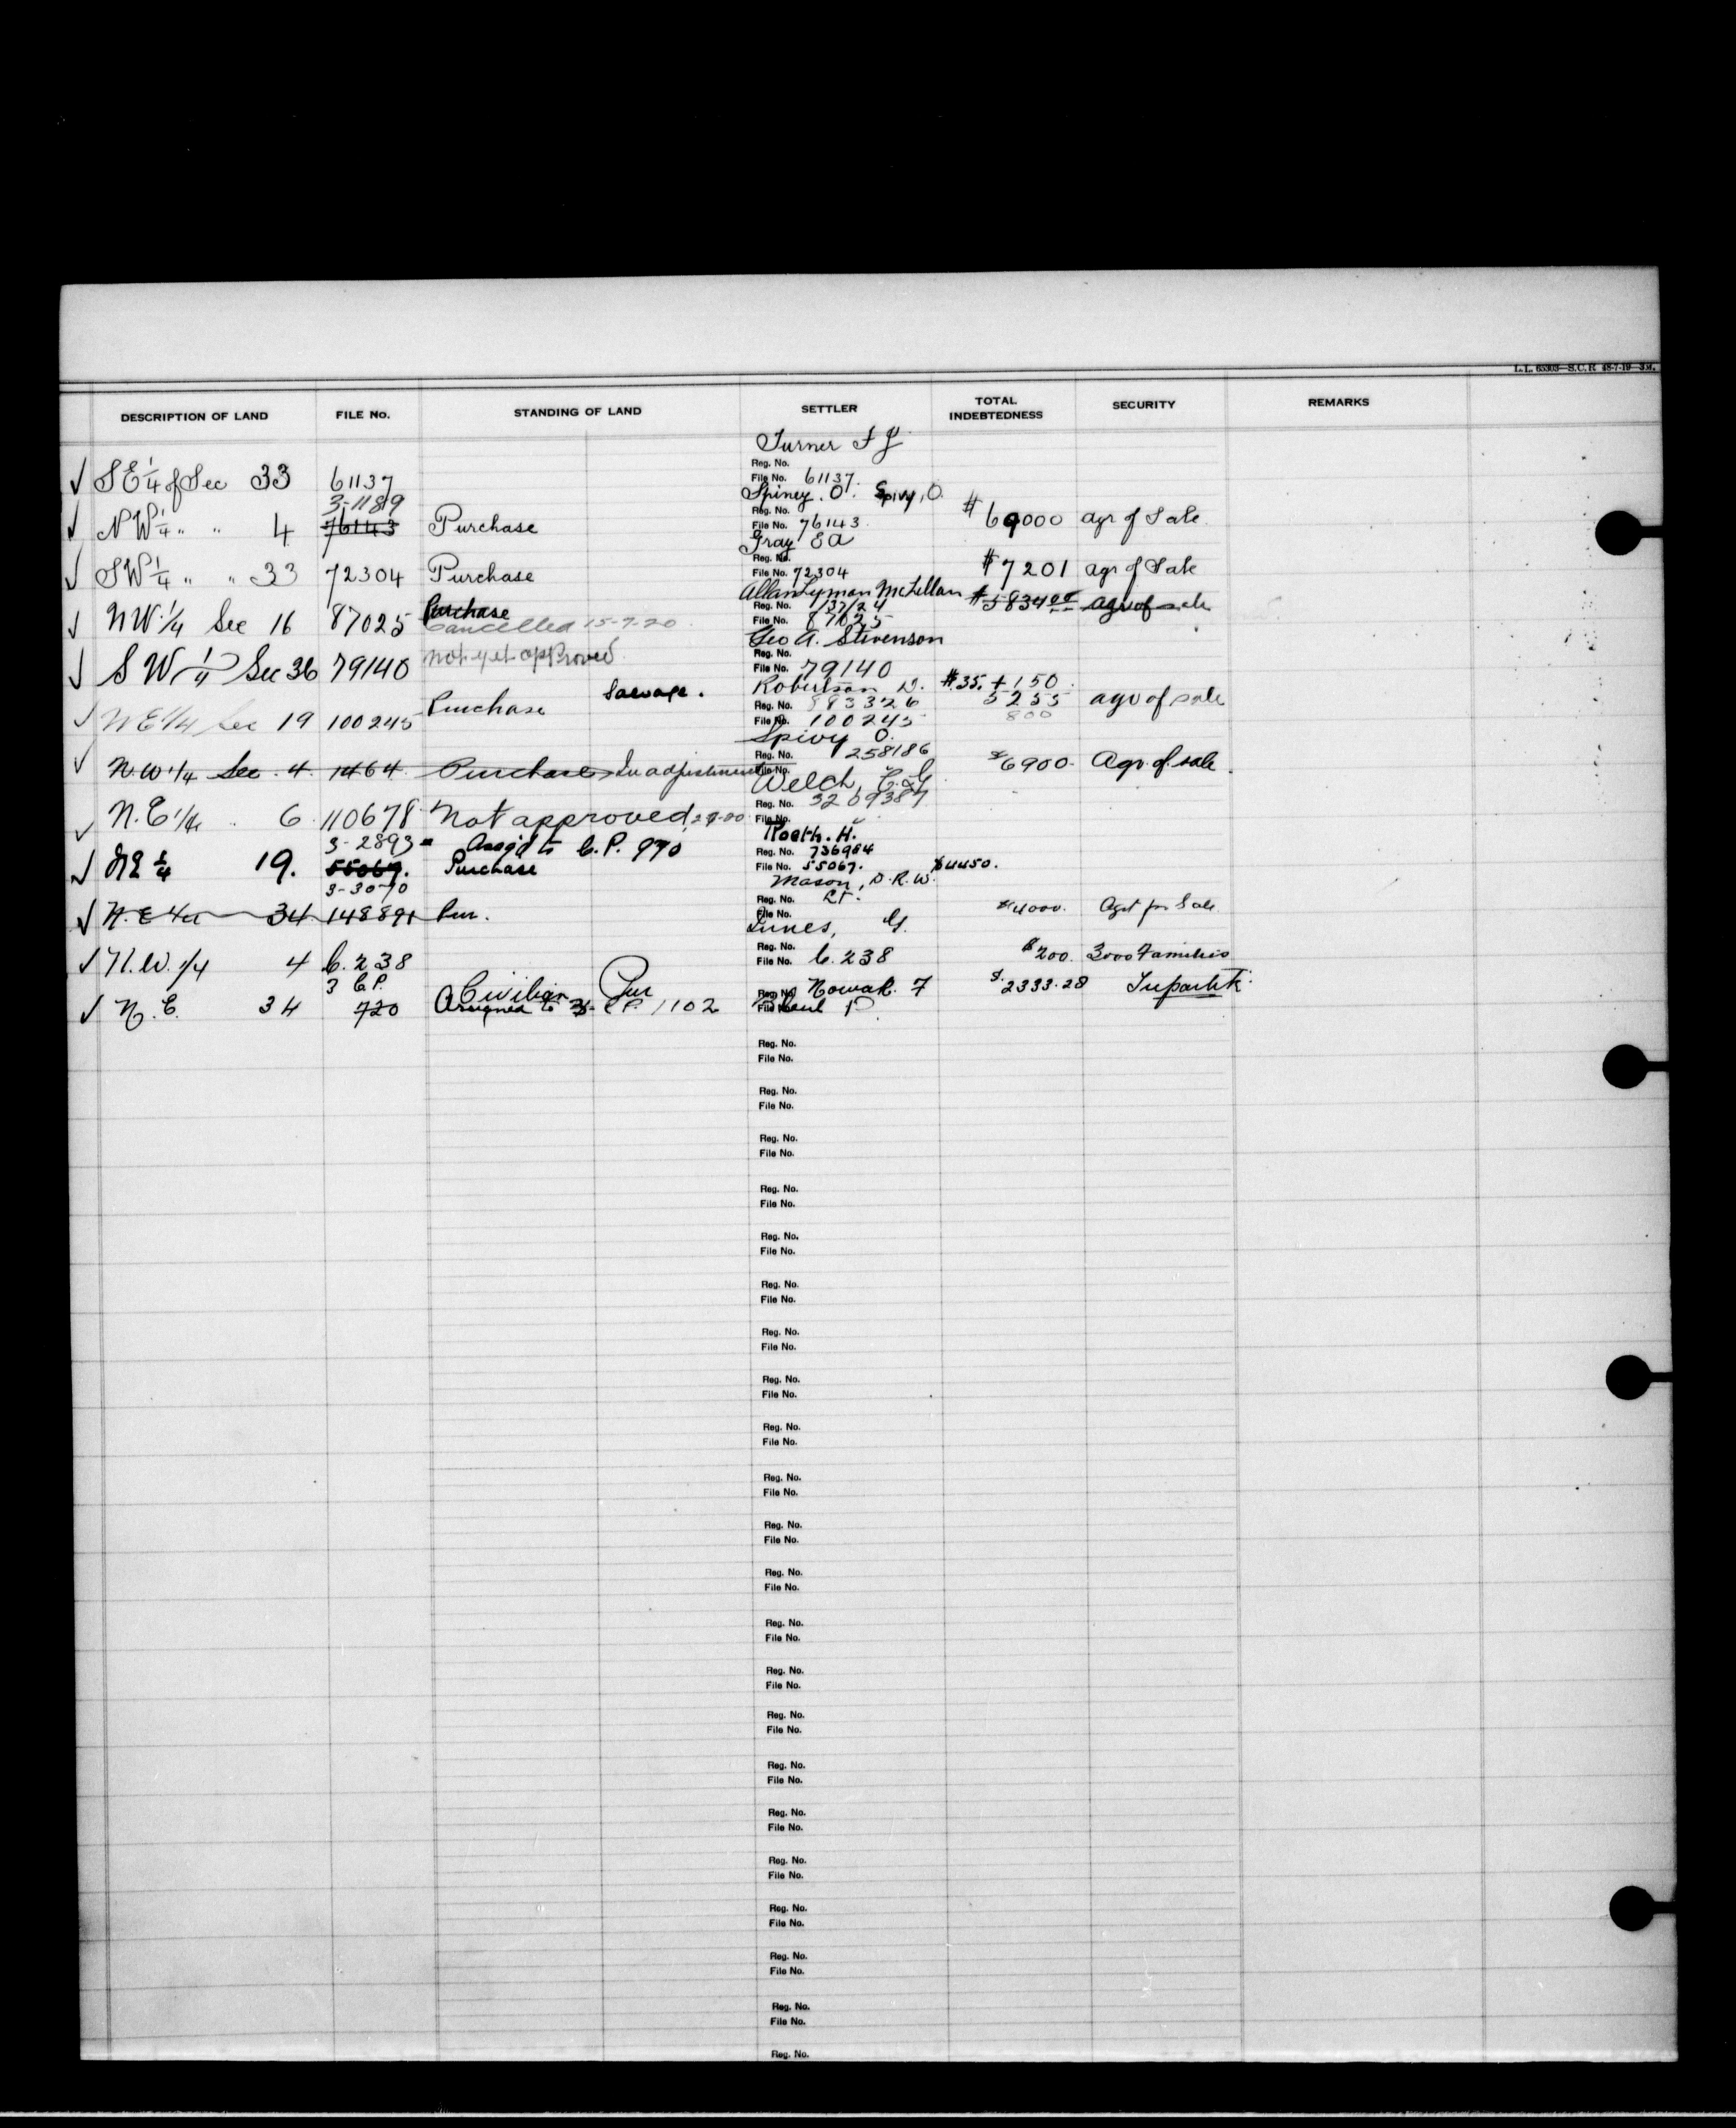 L.L. 65303—S.C.R. 48-7-19—3M.
DESCRIPTION OF LAND FILE No. STANDING OF LAND SETTLER TOTAL INDEBTEDNESS SECURITY REMARKS
Turner F J
Reg. No.
SE 1/4 of Sec 33 61137 File No. 61137
3-1189 Spiney. O. Spivy, O.
Reg. No.
NW 1/4 " " 4 76143 Purchase File No. 76143 $ 69000 agr of Sale
Gray E A
Reg. No.
SW 1/4 " " 33 72304 Purchase File No. 72304 $7201 agr of Sale
Allan Lyman McLellan $5834.00 agr of sale
Purchase Reg. No. 137124
NW 1/4 Sec 16 87025 Cancelled 15-7-20 File No. 87025
Geo A. Stevenson
not yet approved Reg. No.
SW 1/4 Sec 36 79140 File No. 79140
Salvage. Robertson D. $35. + 150
Purchase Reg. No. 883326 5255 agr of sale
NE 1/4 Sec 19 100245 File No. 100245 800
Spivy O.
Reg. No. 258186
N.W 1/4 Sec. 4. 1464. Purchase In adjustment File No. $6900. Agr. of. sale
Welch, C. G
Reg. No. 3209387
N.E 1/4 6 110678 Not approved File No.
3-2893 Assig'd to C.P. 970 Roeth. H.
Reg. No. 736984
NE 1/4 19. 55067. Purchase File No. 55067. $4450.
3-3070 Mason, D.R.W.
Reg. No. Lt.
N.E 1/4 34 148891 Pur. File No. $4000. Agt for Sale
Lunes, G.
Reg. No.
N.W. 1/4 4 C.238 File No. C.238 $200. 3000 Families
3 C.P. Civilian Pur Reg. No. Nowak. F $2333.28 Tripartite
N.E. 34 720 Assigned to 3- C.P. 1102 File No.
Reg. No.
File No.
Reg. No.
File No.
Reg. No.
File No.
Reg. No.
File No.
Reg. No.
File No.
Reg. No.
File No.
Reg. No.
File No.
Reg. No.
File No.
Reg. No.
File No.
Reg. No.
File No.
Reg. No.
File No.
Reg. No.
File No.
Reg. No.
File No.
Reg. No.
File No.
Reg. No.
File No.
Reg. No.
File No.
Reg. No.
File No.
Reg. No.
File No.
Reg. No.
File No.
Reg. No.
File No.
Reg. No.
File No.
Reg. No.